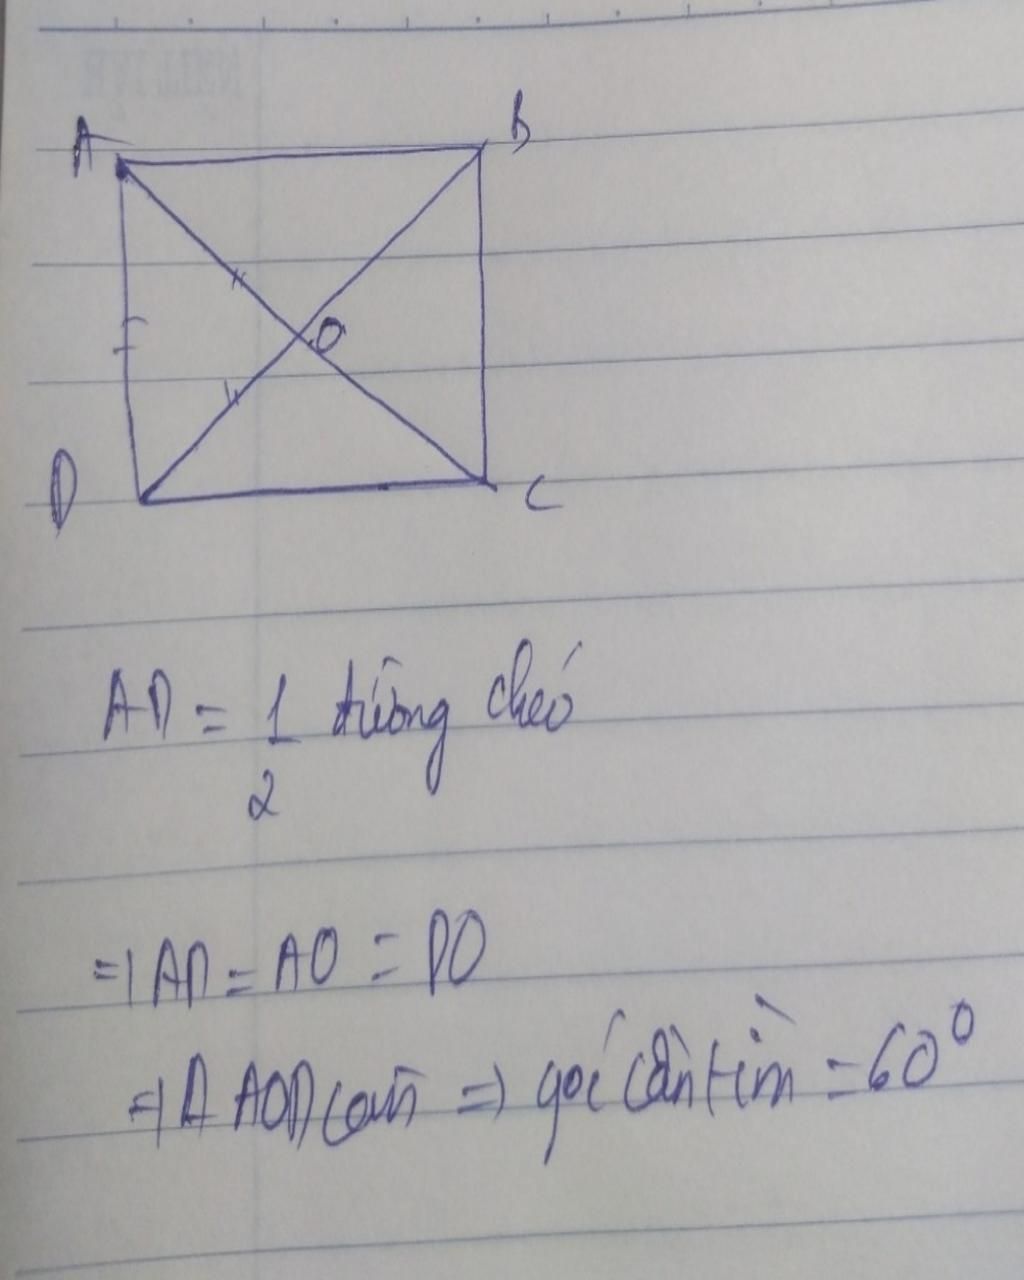 A
B
O
D
C
AD = 1/2 đường chéo
=) AD = AO = DO
=) Δ AOD cân =) góc cần tìm = 60°